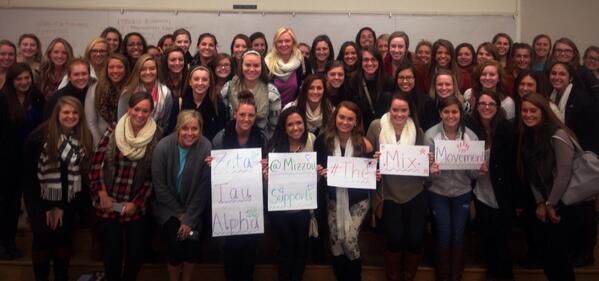 Zeta
Tau
Alpha
@Mizzou
Supports
#The
Mix
Movement